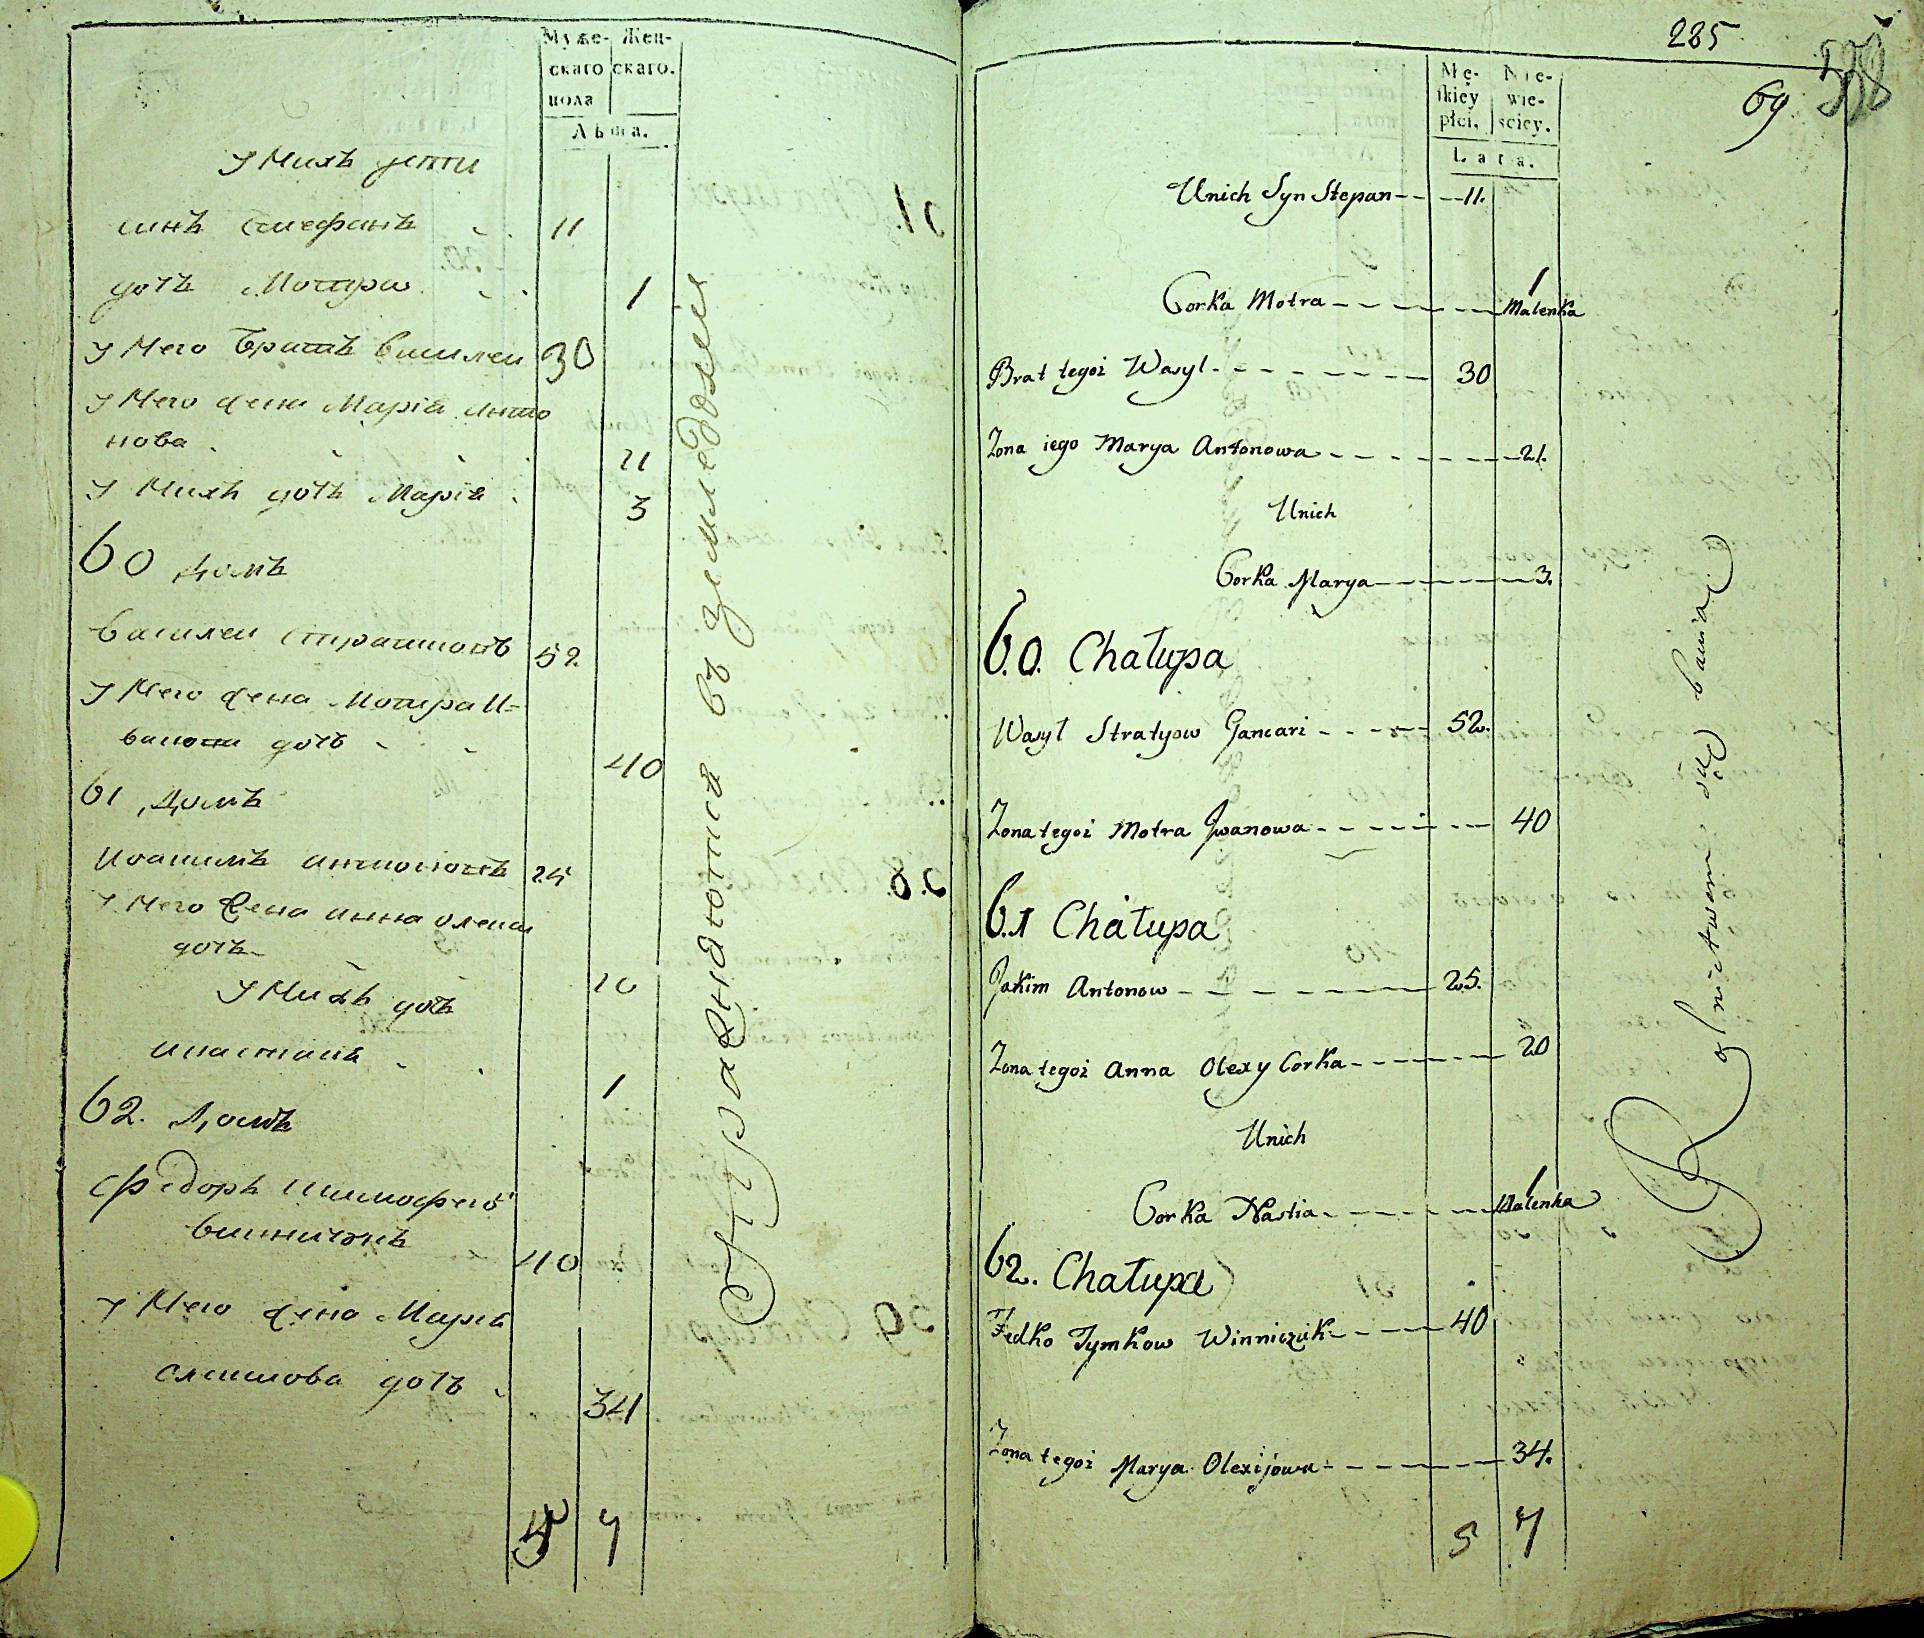 Муже-
скаго
пола
Жен-
скаго.
Лѣта.
У Нихъ дѣти
синъ Стефанъ 11
дочь Мотра 1
У Него братъ Василей 30
У Него жена Марія Анто
нова 21
У Нихъ дочь Марія 3
60 Домъ
Василей 52
У Него жена Мотра И=
ванова дочь 40
61 Домъ
Иоакимъ Антоновъ 25
У Него жена Анна Олекси
дочь 20
У Нихъ дочь
Настасия 1
62. Домъ
Федоръ Тимофеевъ
Винничокъ 40
У Него жена Марія
дочь 34
5 7
Упражняются въ земледелии
285
69
538
Mę-
skiey
płci.
Nie-
wie-
sciey.
Lata.
Unich Syn Stepan 11.
Corka Motra 1 Malenka
Brat tegoż Wasyl 30
Zona iego Marya Antonowa 21.
Unich
Corka Marya 3.
60. Chałupa
Wasyl Stratyow Gancari 52.
Zona tegoż Motra Jwanowa 40
61 Chałupa
Jakim Antonow 25.
Zona tegoż Anna Olexy Corka 20
Unich
Corka Nastia 1 Malenka
62. Chałupa
Fedko Tymkow Winniczuk 40
Zona tegoż Marya Olexijowa 34.
5 7
Rolnictwem się bawią